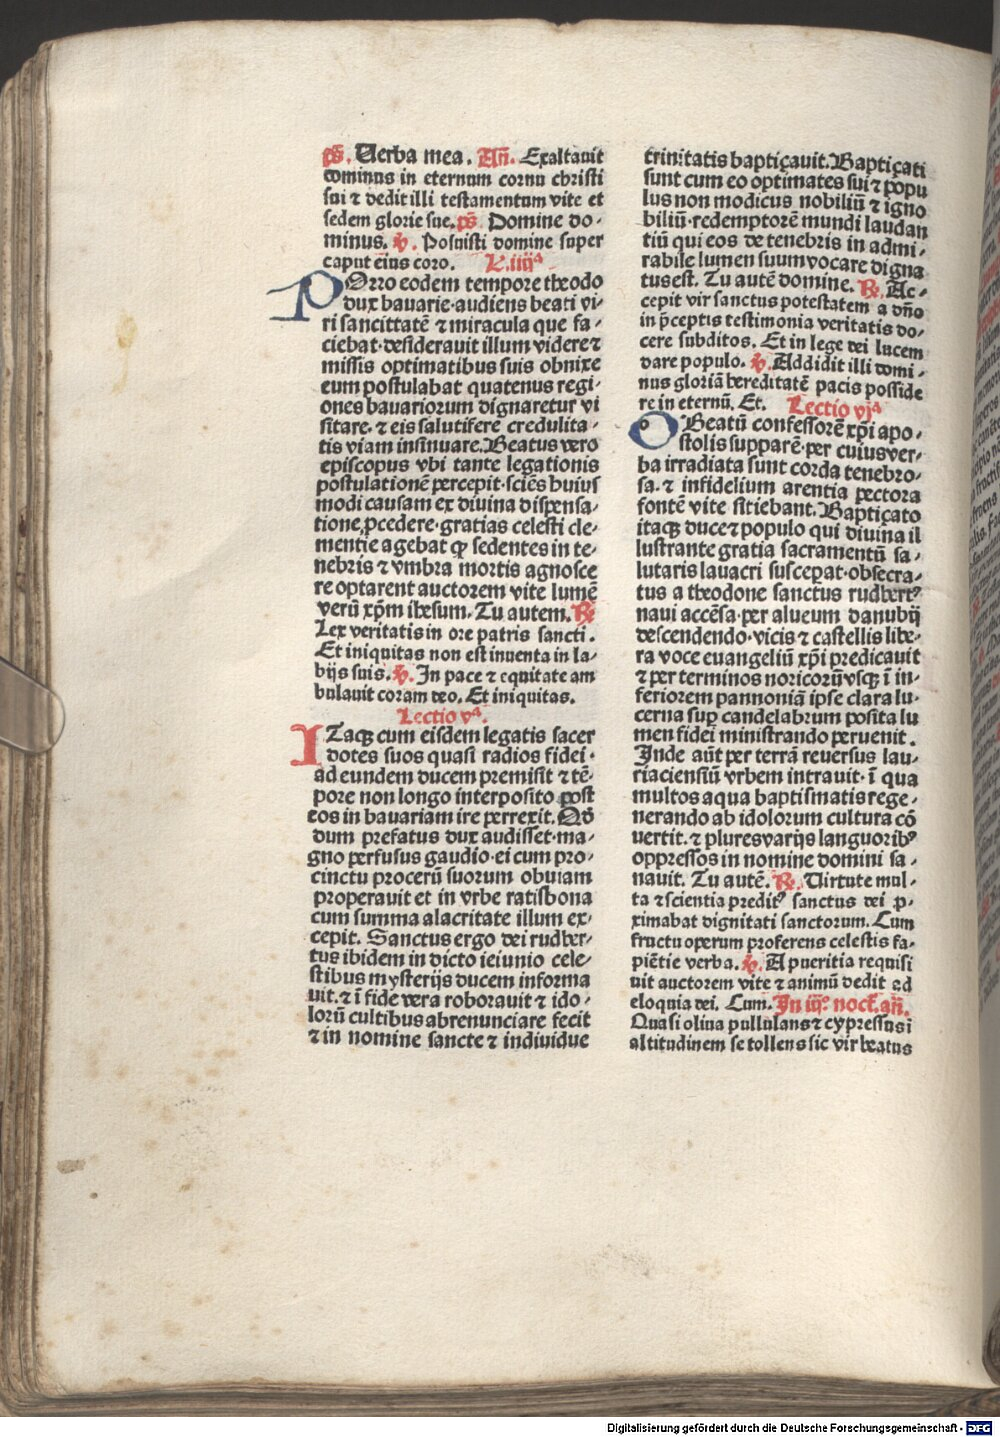 ps̄. Uerba mea. Añ. Exaltauit
dominus in eternum cornu christi
sui ⁊ dedit illi testamentum vite et
sedem glorie sue. ps̄. Domine do-
minus. ℣. Posuisti domine super
caput eius coro. L. iiijª
POrro eodem tempore theodo
dux bauarie·audiens beati vi-
ri sancittatē ⁊ miracula que fa-
ciebat·desiderauit illum videre ⁊
missis optimatibus suis obnixe
eum postulabat quatenus regi-
ones bauariorum dignaretur vi
sitare·⁊ eis salutifere credulita-
tis viam insinuare. Beatus vero
episcopus vbi tante legationis
postulationē percepit·sciēs huius
modi causam ex diuina dispensa-
tione ꝓcedere·gratias celesti cle-
mentie agebat ꝙ sedentes in te-
nebris ⁊ vmbra mortis agnosce
re optarent auctorem vite lumē
verū xp̄m ihesum. Tu autem. ℟.
Lex veritatis in ore patris sancti.
Et iniquitas non est inuenta in la-
bijs suis. ℣. In pace ⁊ equitate am
bulauit coram deo. Et iniquitas.
Lectio vª.
ITaqꝫ cum eisdem legatis sacer
dotes suos quasi radios fidei·
ad eundem ducem premisit ⁊ tē-
pore non longo interposito post
eos in bauariam ire perrexit. Qd̄
dum prefatus dux audisset·ma-
gno perfusus gaudio·ei cum pro-
cinctu procerū suorum obuiam
properauit et in vrbe ratisbona
cum summa alacritate illum ex-
cepit. Sanctus ergo dei rudber-
tus ibidem in dicto ieiunio cele-
stibus mysterijs ducem informa
uit.⁊ ī fide vera roborauit ⁊ ido-
lorū cultibus abrenunciare fecit
⁊ in nomine sancte ⁊ indiuidue
trinitatis baptiçauit. Baptiçati
sunt cum eo optimates sui ⁊ popu
lus non modicus nobiliū ⁊ igno
biliū·redemptorē mundi laudan
tiū qui eos de tenebris in admi-
rabile lumen suum vocare digna
tus est. Tu autē domine. ℟. Ac-
cepit vir sanctus potestatem a dn̄o
in p̄ceptis testimonia veritatis do-
cere subditos. Et in lege dei lucem
dare populo. ℣. Addidit illi domi-
nus gloriā hereditatē pacis posside
re in eternū. Et. Lectio vjª
O Beatū confessorē xp̄i apo-
stolis supparē·per cuius ver-
ba irradiata sunt corda tenebro-
sa.⁊ infidelium arentia pectora
fontē vite sitiebant. Baptiçato
itaqꝫ duce ⁊ populo qui diuina il
lustrante gratia sacramentū sa-
lutaris lauacri susceperat·obsecra-
tus a theodone sanctus rudbertꝰ
naui accēsa·per alueum danubij
descendendo·vicis ⁊ castellis libe-
ra voce euangeliū xp̄i predicauit
⁊ per terminos noricorū vsqꝫ ī in-
feriorem pannoniā ipse clara lu-
cerna suꝑ candelabrum posita lu
men fidei ministrando peruenit.
Inde aūt per terrā reuersus lau-
riaciensiū vrbem intrauit·ī qua
multos aqua baptismatis rege-
nerando ab idolorum cultura cō
uertit.⁊ plures varijs languoribꝰ
oppressos in nomine domini sa-
nauit. Tu autē. ℟. Uirtute mul-
ta ⁊ scientia preditꝰ sanctus dei ꝓ-
ximabat dignitati sanctorum. Cum
fructu operum proferens celestis sa-
piētie verba. ℣. A pueritia requisi
uit auctorem vite ⁊ animū dedit ad
eloquia dei. Cum. In iijº noct̄. añ.
Quasi oliua pullulans ⁊ cypressus ī
altitudinem se tollens sic vir beatus
Digitalisierung gefördert durch die Deutsche Forschungsgemeinschaft - DFG